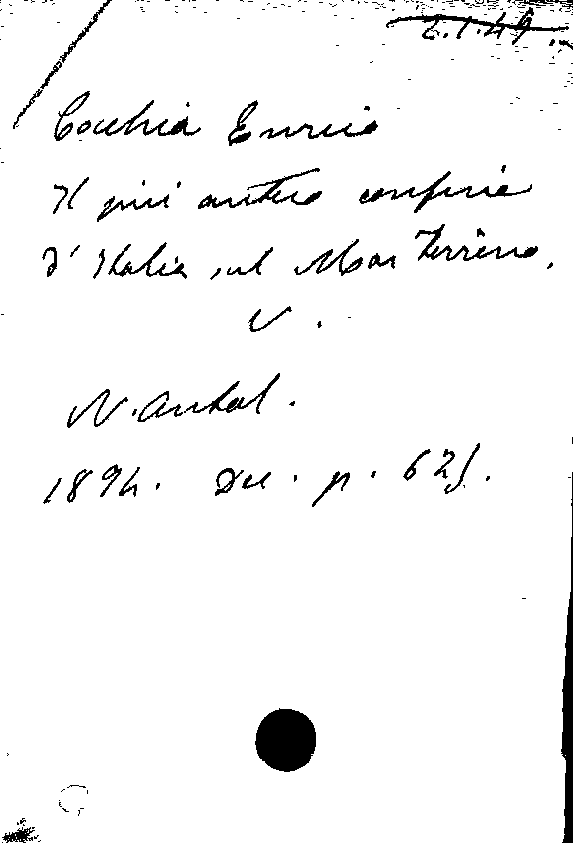 2.1.49
Cocchia Enrico
Il più antico confine
d'Italia sul Mar Tirreno.
V.
N. Antol.
1894. Dec. p. 625.